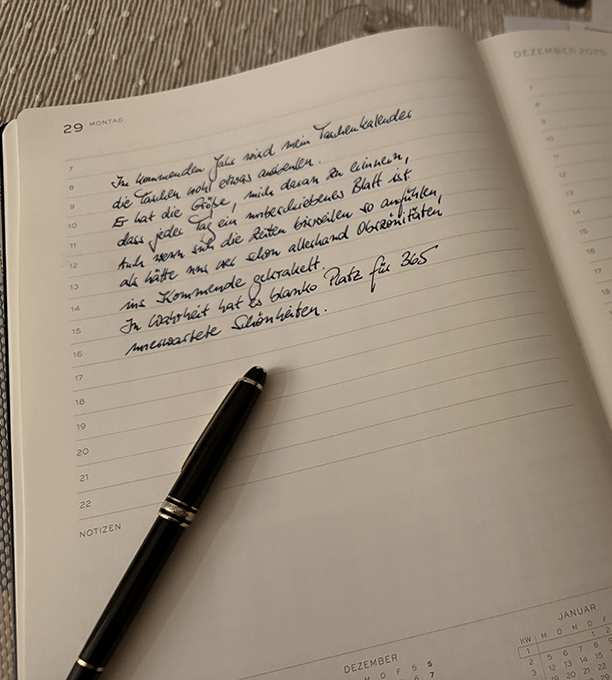 29 MONTAG
7
8 Im kommenden Jahr wird mein Taschenkalender
9 die Taschen wohl etwas ausbeulen.
10 Er hat die Größe, mich daran zu erinnern,
11 dass jeder Tag ein unbeschriebenes Blatt ist
12 Auch wenn sich die Zeiten bisweilen so anfühlen,
13 als hätte uns wer schon allerhand Obszönitäten
14 ins Kommende gekrakelt.
15 In Wahrheit hat es blanko Platz für 365
16 unerwartete Schönheiten.
17
18
19
20
21
22
NOTIZEN
DEZEMBER
F S S
DEZEMBER 2025
7
8
9
10
11
12
13
14
15
16
17
18
JANUAR
KW M D M D F
1 1 2
2 5 6 7 8
3 12 13 14 15